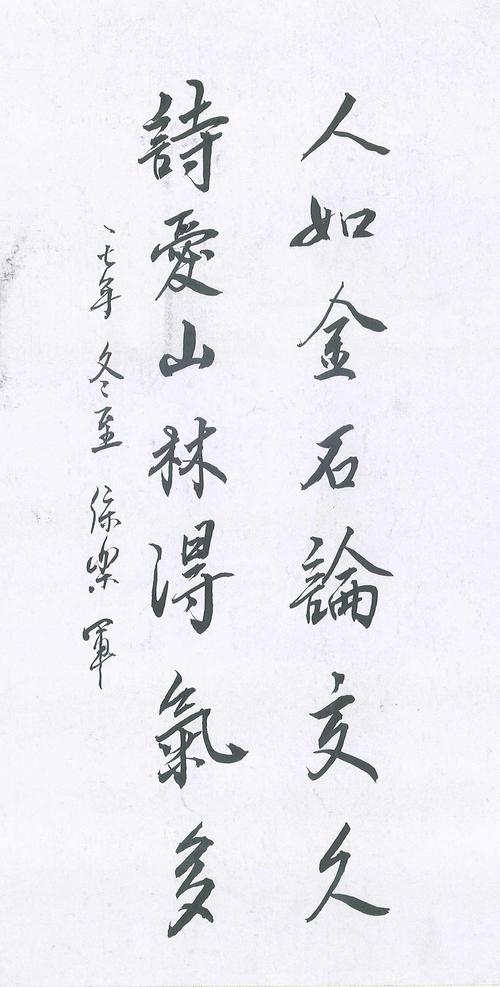 人如金石論交久
詩愛山林得氣多
一七年 冬至 徐樂軍